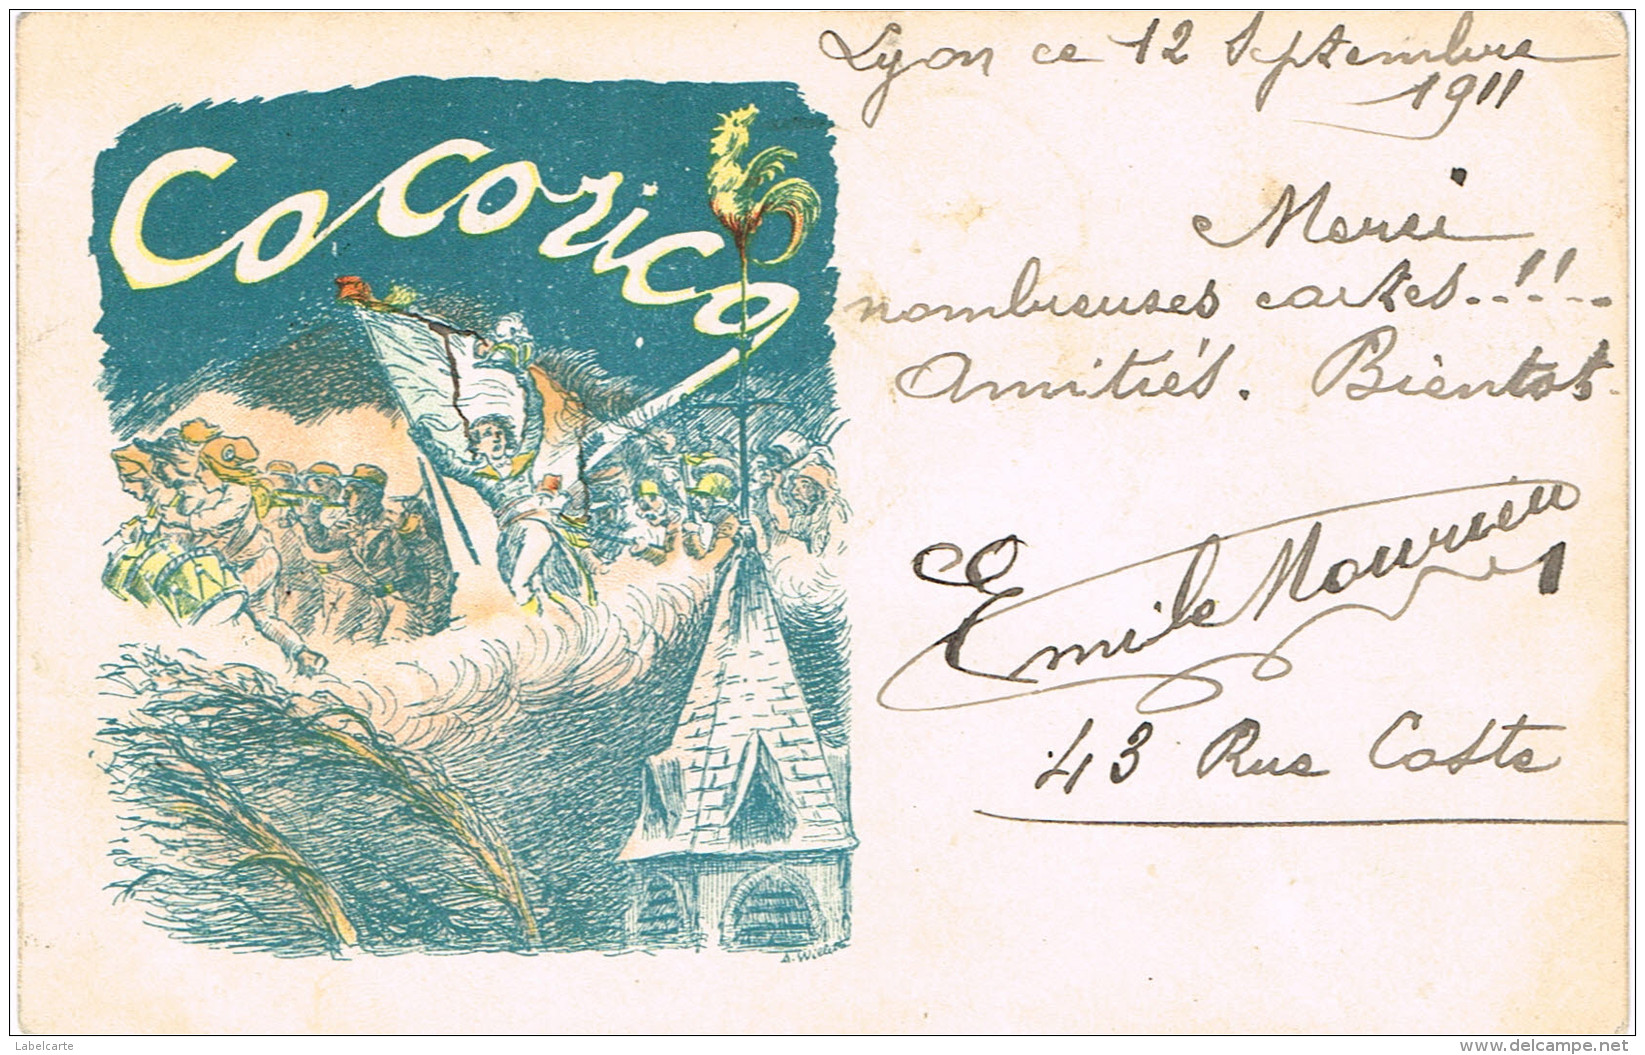 Lyon ce 12 Septembre
1911
Cocorico
Merci
nombreuses cartes..!!..
Amitiés. Bientot.
Emile
43 Rue Coste
A. Willette
Labelcarte
www.delcampe.net